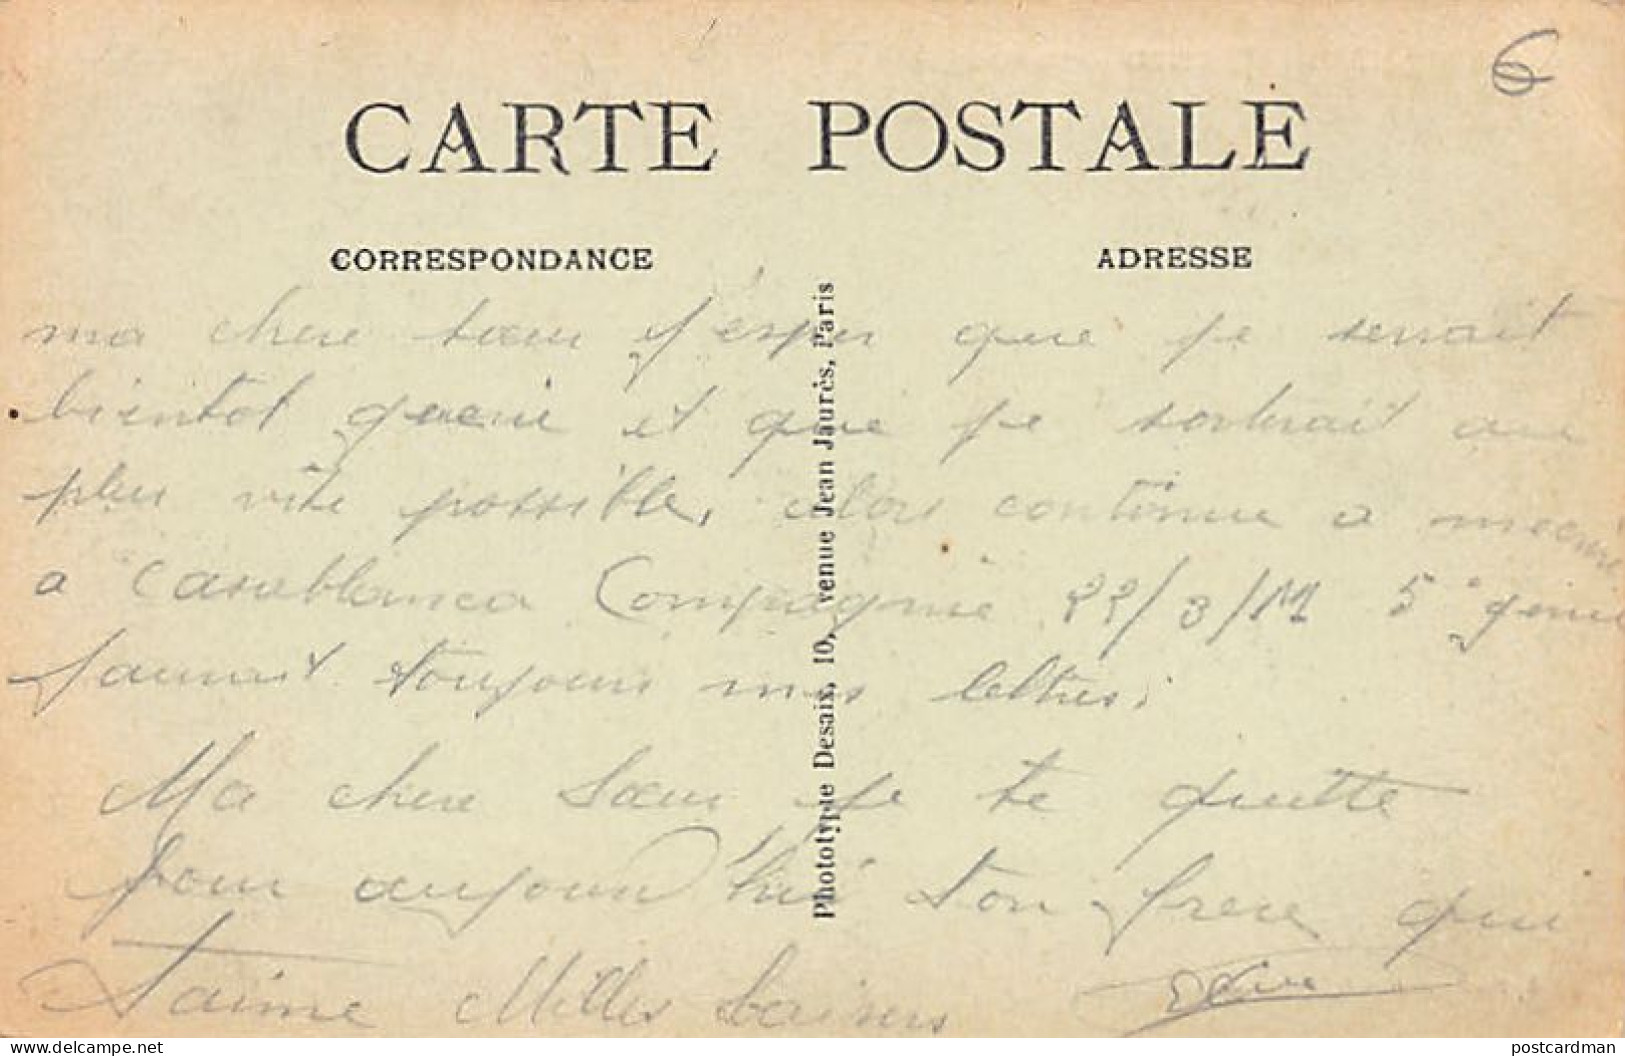 6
CARTE POSTALE
CORRESPONDANCE
ADRESSE
ma chere sœur j'espere que je serrait
bientot gueri et que je sortirait au
plus vite possible, alors continue a mecrire
a Casablanca Compagnie 22/3/M 5e genie
jaurait toujours mes lettres.
Ma chere Sœur je te quitte
pour aujourd'hui ton frere qui
t'aime Milles baisers
Phototypie Desaix, 10, venue Jean Jaurès, Paris
delcampe.net
postcardman